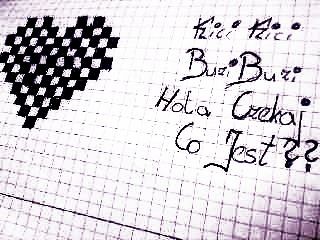 Kici Kici
Buzi Buzi
Hola Czekaj
Co Jest ??